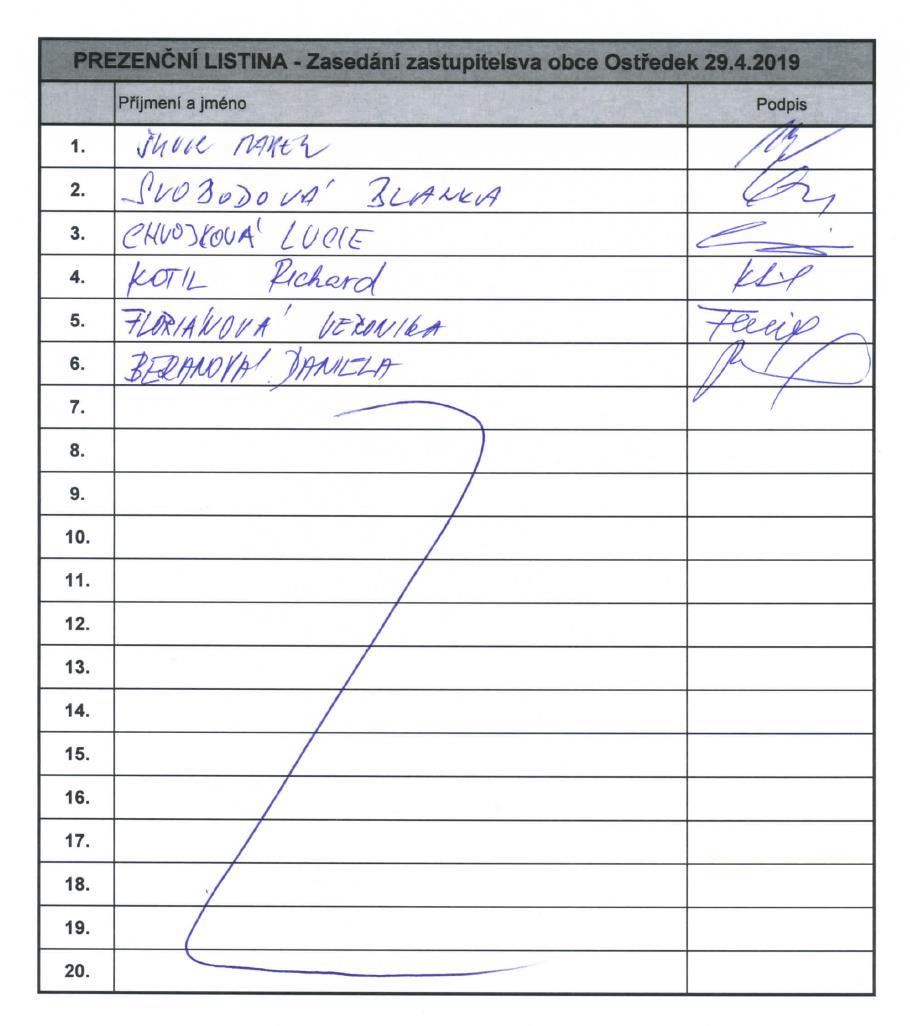 PREZENČNÍ LISTINA - Zasedání zastupitelsva obce Ostředek 29.4.2019
Příjmení a jméno Podpis
1. MAREK
2. SVOBODOVÁ BLANKA
3. CHVOJKOVÁ LUCIE
4. KOTIL Richard
5. FLORIÁNOVÁ VERONIKA
6. BERANOVÁ DANIELA
7.
8.
9.
10.
11.
12.
13.
14.
15.
16.
17.
18.
19.
20.